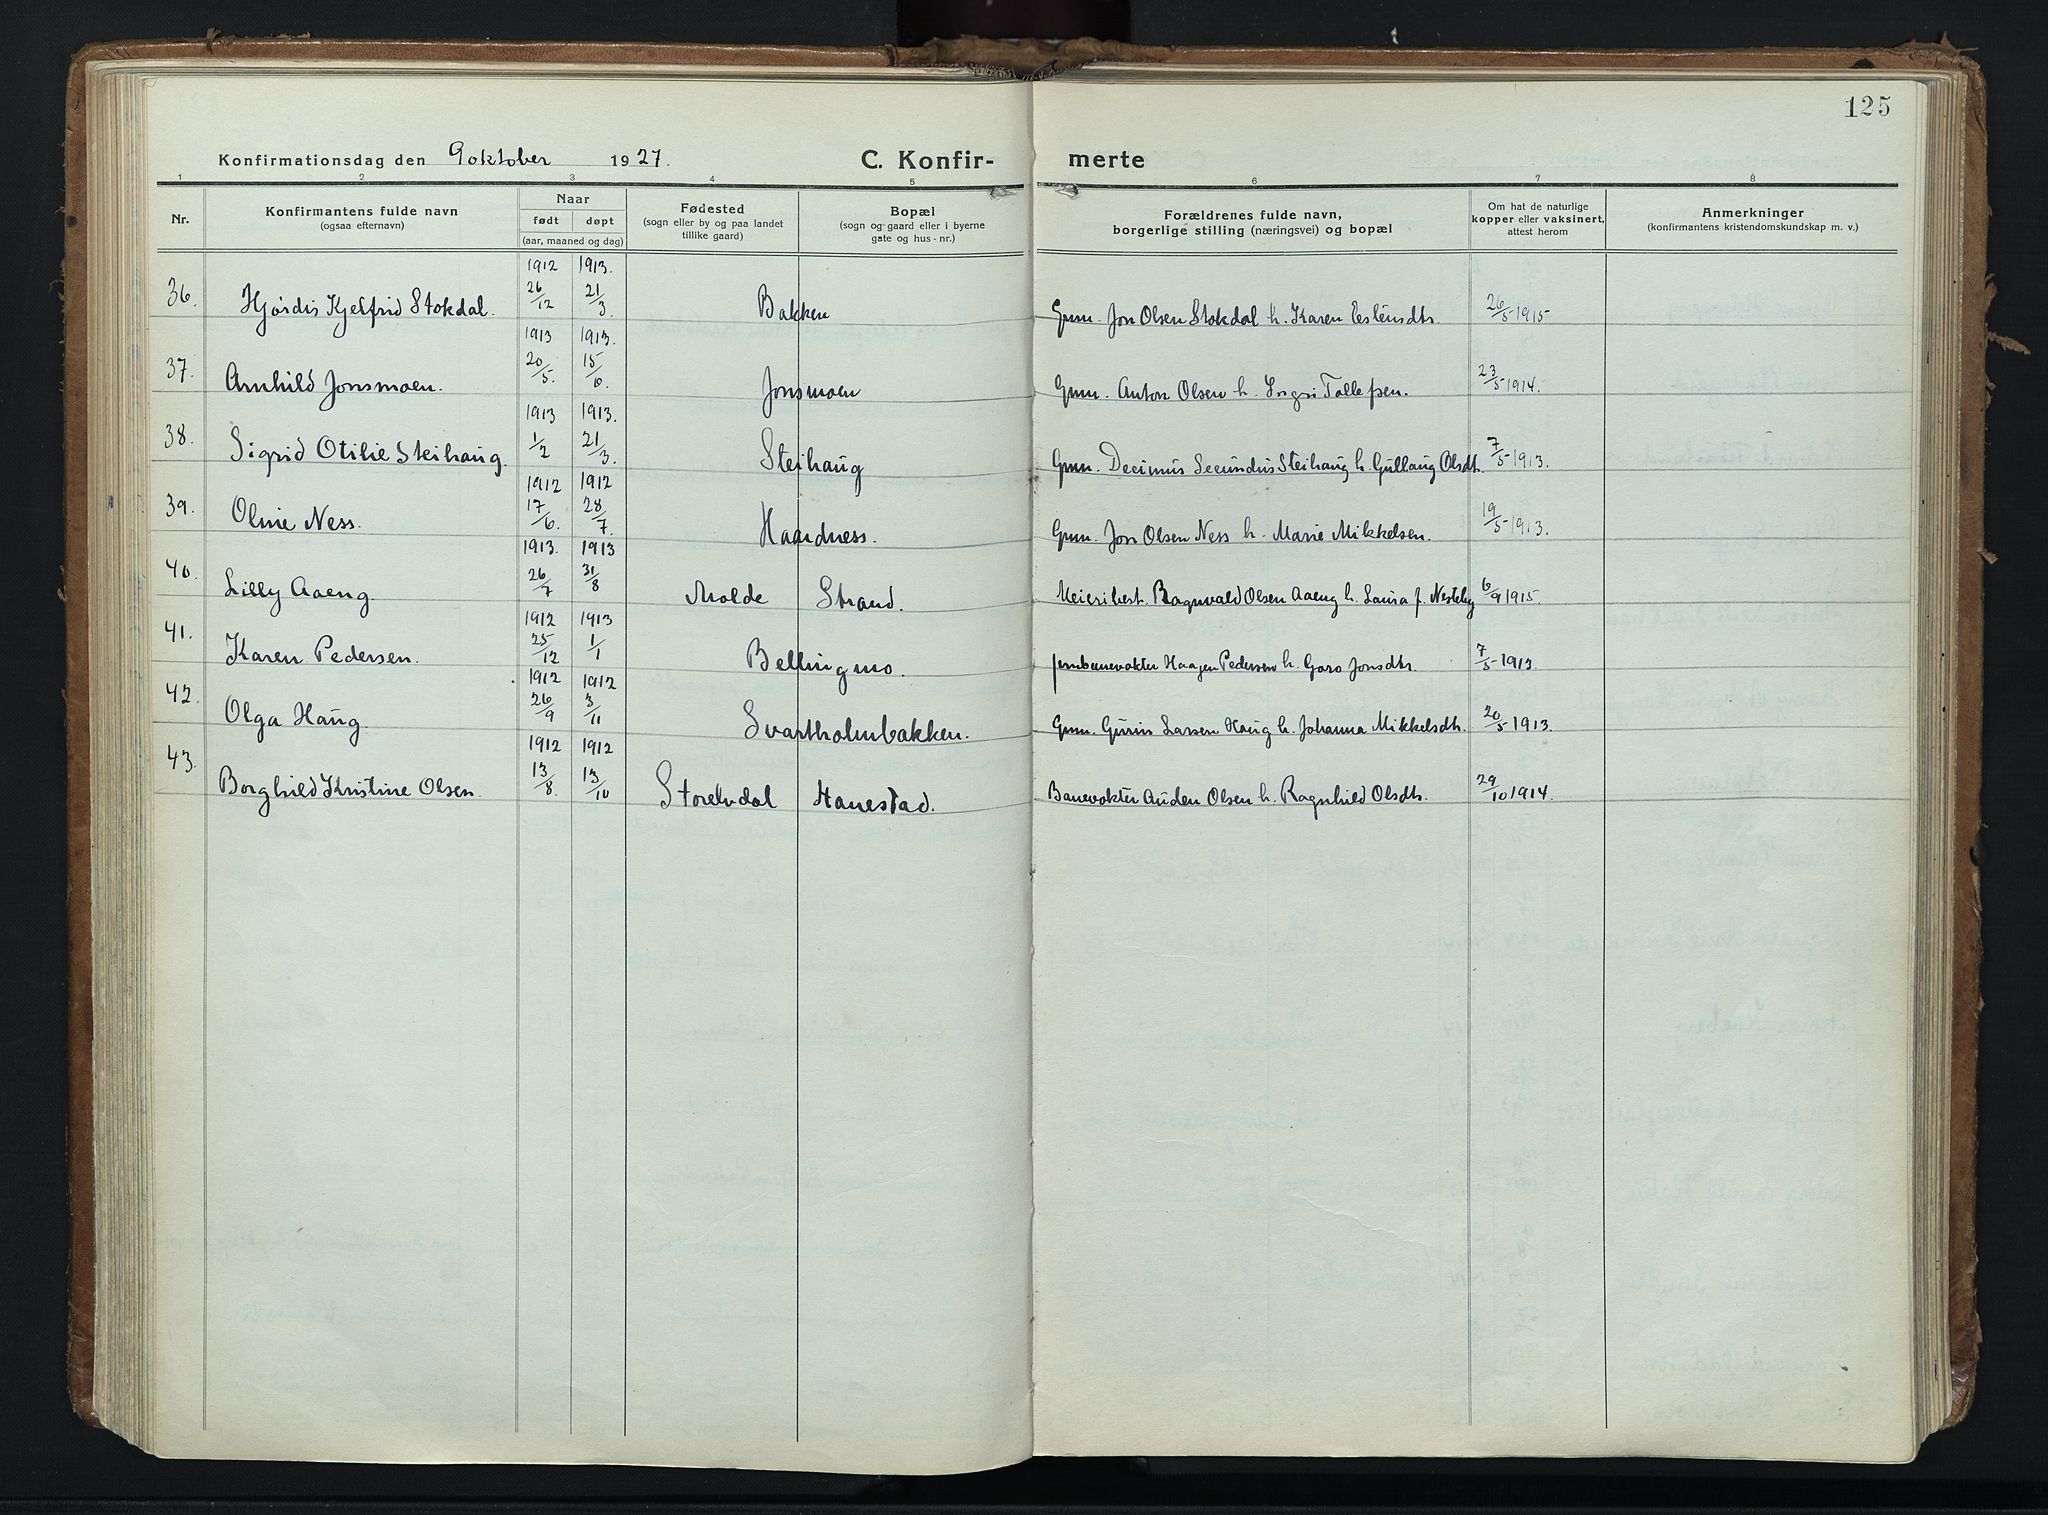 125
Konfirmationsdag den 9 oktober 1927. C. Konfir- merte
1 2 3 4 5 6 7 8
Nr. Konfirmantens fulde navn (ogsaa efternavn) Naar født døpt (aar, maaned og dag) Fødested (sogn eller by og paa landet tillike gaard) Bopæl (sogn og gaard eller i byerne gate og hus-nr.) Forældrenes fulde navn, borgerlige stilling (næringsvei) og bopæl Om hat de naturlige kopper eller vaksinert, attest herom Anmerkninger (konfirmantens kristendomskundskap m. v.)
1912 1913.
36. Hjørdis Kjelfrid Stokdal. 26/12 21/3. Bakken Gmn. Jon Olsen Stokdal h. Karen Eslensdtr. 26/5 1915
1913 1913.
37. Arnhild Jonsmoen. 20/5. 15/6. Jonsmoen Gmn. Anton Olsen h. Ingri Tollefsen. 23/5 1914.
1913 1913.
38. Sigrid Otilie Steihaug. 1/2 21/3. Steihaug Gmn. Decimus Secundus Steihaug h. Gullaug Olsdt. 7/5 1913.
1912 1912
39. Oline Ness. 17/6. 28/7. Haardness. Gmn. Jon Olsen Ness h. Marie Mikkelsen. 19/5 1913.
1913. 1913
40. Lilly Aaeng 26/7 31/8 Molde Strand. Meieribest. Ragnvald Olsen Aaeng h. Laura f. Nesteby 6/9 1915.
1912 1913
41. Karen Pedersen. 25/12 1/1 Bellingmo. Jernbanevokter Haagen Pedersen h. Goro Jonsdtr. 7/5 1913.
1912 1912
42. Olga Haug. 26/9 3/11 Svartholmbakken. Gmn. Gurius Larsen Haug h. Johanna Mikkelsdtr. 20/5 1913.
1912 1912
43. Borghild Kristine Olsen. 13/8. 13/10 Storelvdal Hanestad. Banevokter Auden Olsen h. Ragnhild Olsdtr. 29/10 1914.